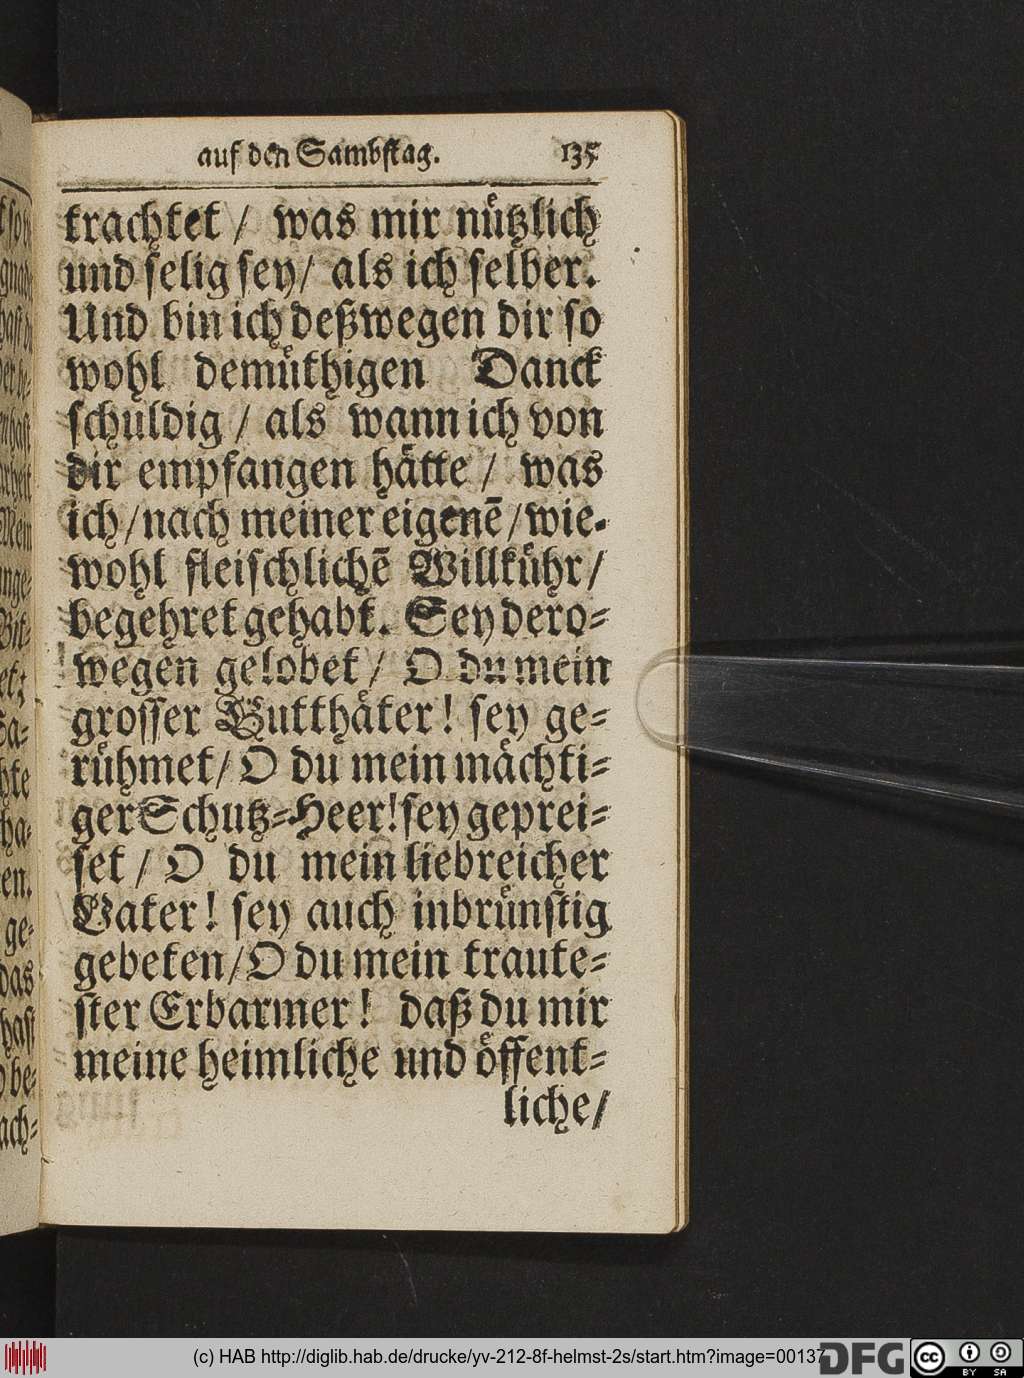 auf den Sambſtag. 135
trachtet / was mir nuͤtzlich
und ſelig ſey / als ich ſelber.
Und bin ich deßwegen dir ſo
wohl demuͤthigen Danck
ſchuldig / als wann ich von
dir empfangen haͤtte / was
ich / nach meiner eigenē / wie-
wohl fleiſchlichē Willkuͤhr /
begehret gehabt. Sey dero-
wegen gelobet / O du mein
groſſer Gutthaͤter! ſey ge-
ruͤhmet / O du mein maͤchti-
ger Schutz-Heer! ſey geprei-
ſet / O du mein liebreicher
Vater! ſey auch inbruͤnſtig
gebeten / O du mein traute-
ſter Erbarmer! daß du mir
meine heimliche und oͤffent-
liche /
(c) HAB http://diglib.hab.de/drucke/yv-212-8f-helmst-2s/start.htm?image=00137
DFG
cc BY SA